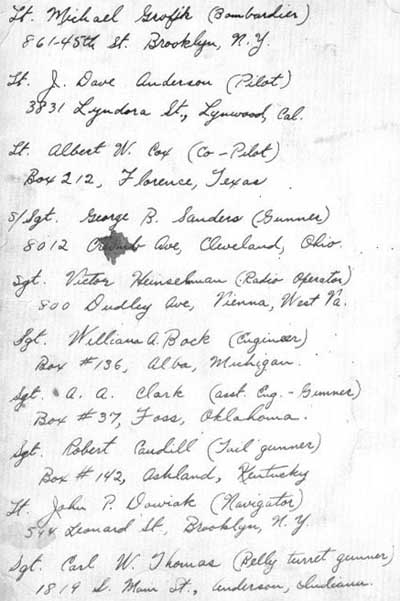 Lt. Michael Grofik (Bombardier)
861-45th St. Brooklyn, N.Y.
Lt. J. Dave Anderson (Pilot)
3831 Lyndora St., Lynwood, Cal.
Lt. Albert W. Cox (Co-Pilot)
Box 212, Florence, Texas
S/Sgt. George B. Sanders (Gunner)
8012 Ave, Cleveland, Ohio.
Sgt. Victor Heinselman (Radio Operator)
800 Dudley Ave, Vienna, West Va.
Sgt. William A. Bock (Engineer)
Box #136, Alba, Michigan.
Sgt. A. A. Clark (asst. Eng. - Gunner)
Box #37, Foss, Oklahoma.
Sgt. Robert Caudill (Tail gunner)
Box #142, Ashland, Kentucky
Lt. John P. Dowiak (Navigator)
544 Leonard St., Brooklyn, N.Y.
Sgt. Carl W. Thomas (Belly turret gunner)
1819 S. Main St., Anderson, Indiana.